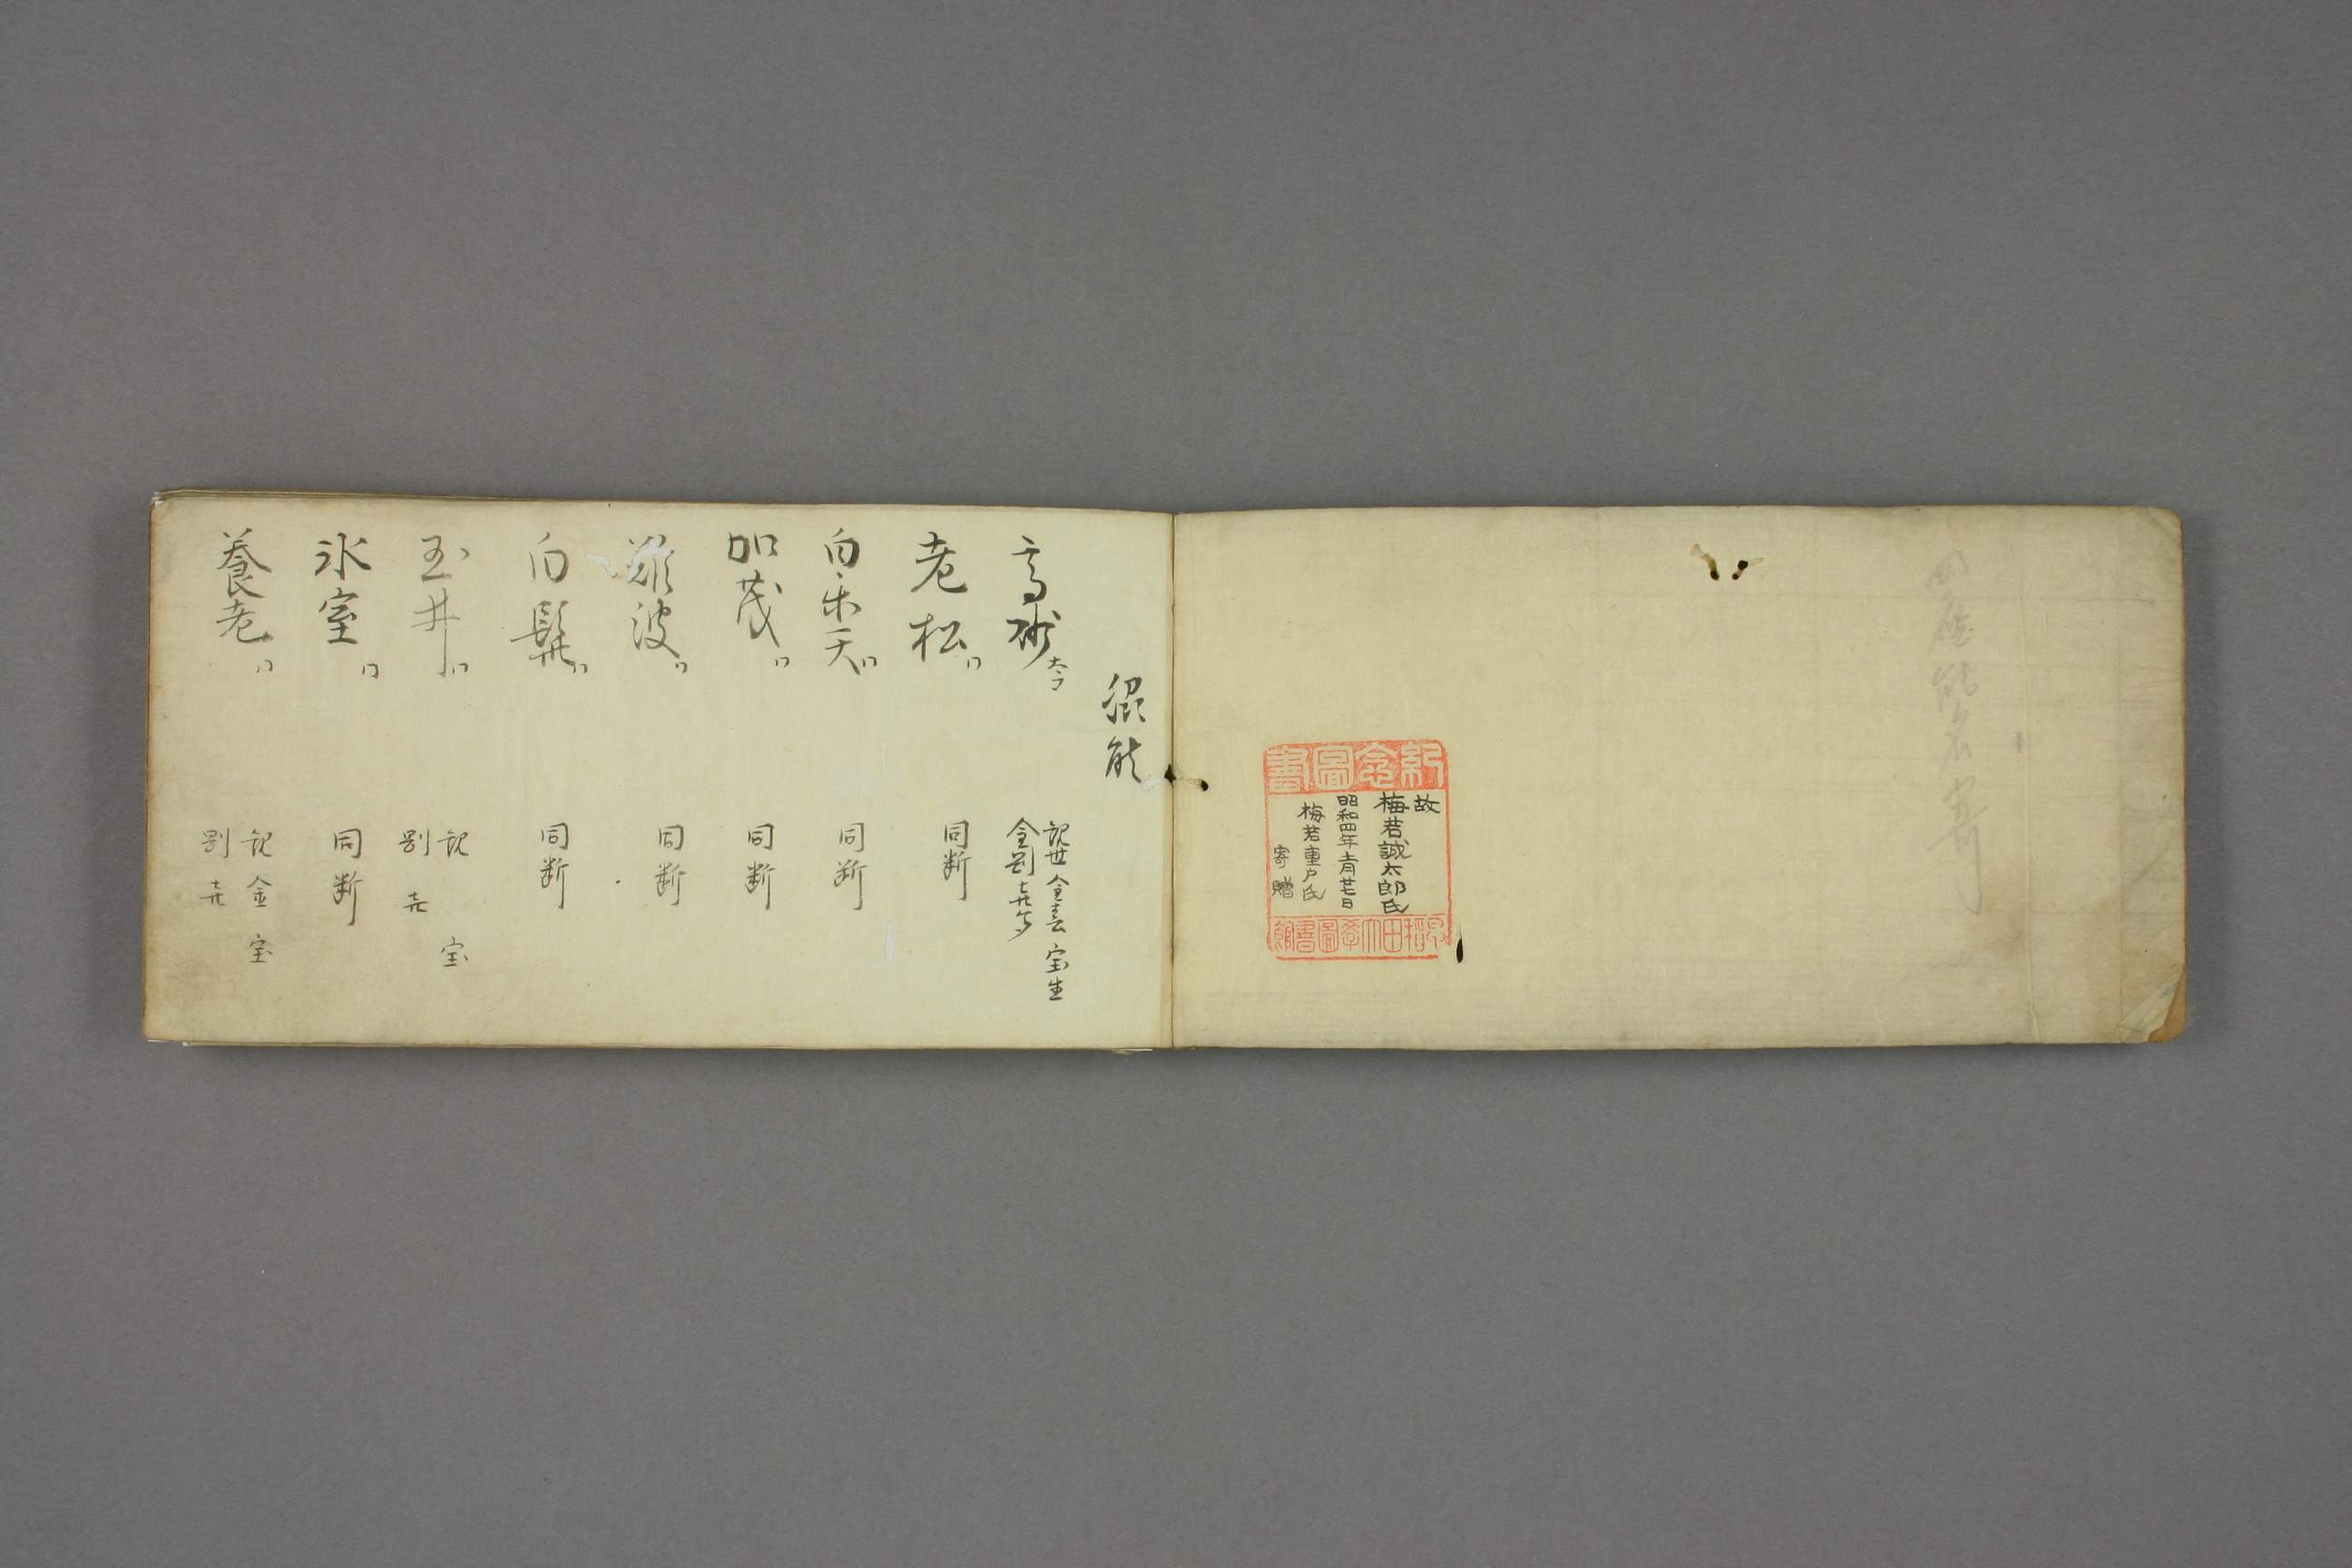 紀念圖書
故
梅若誠太郎氏
昭和四年 月廿七日
梅若重戸氏
寄贈
早稲田大學圖書館
能
高砂
観世 金春 宝生
金剛 喜多
老松〃 同断
白楽天〃 同断
加茂〃 同断
難波〃 同断
白髭〃 同断
玉井〃 観 宝
剛 喜
氷室〃 同断
養老〃 観 金 宝
剛 喜